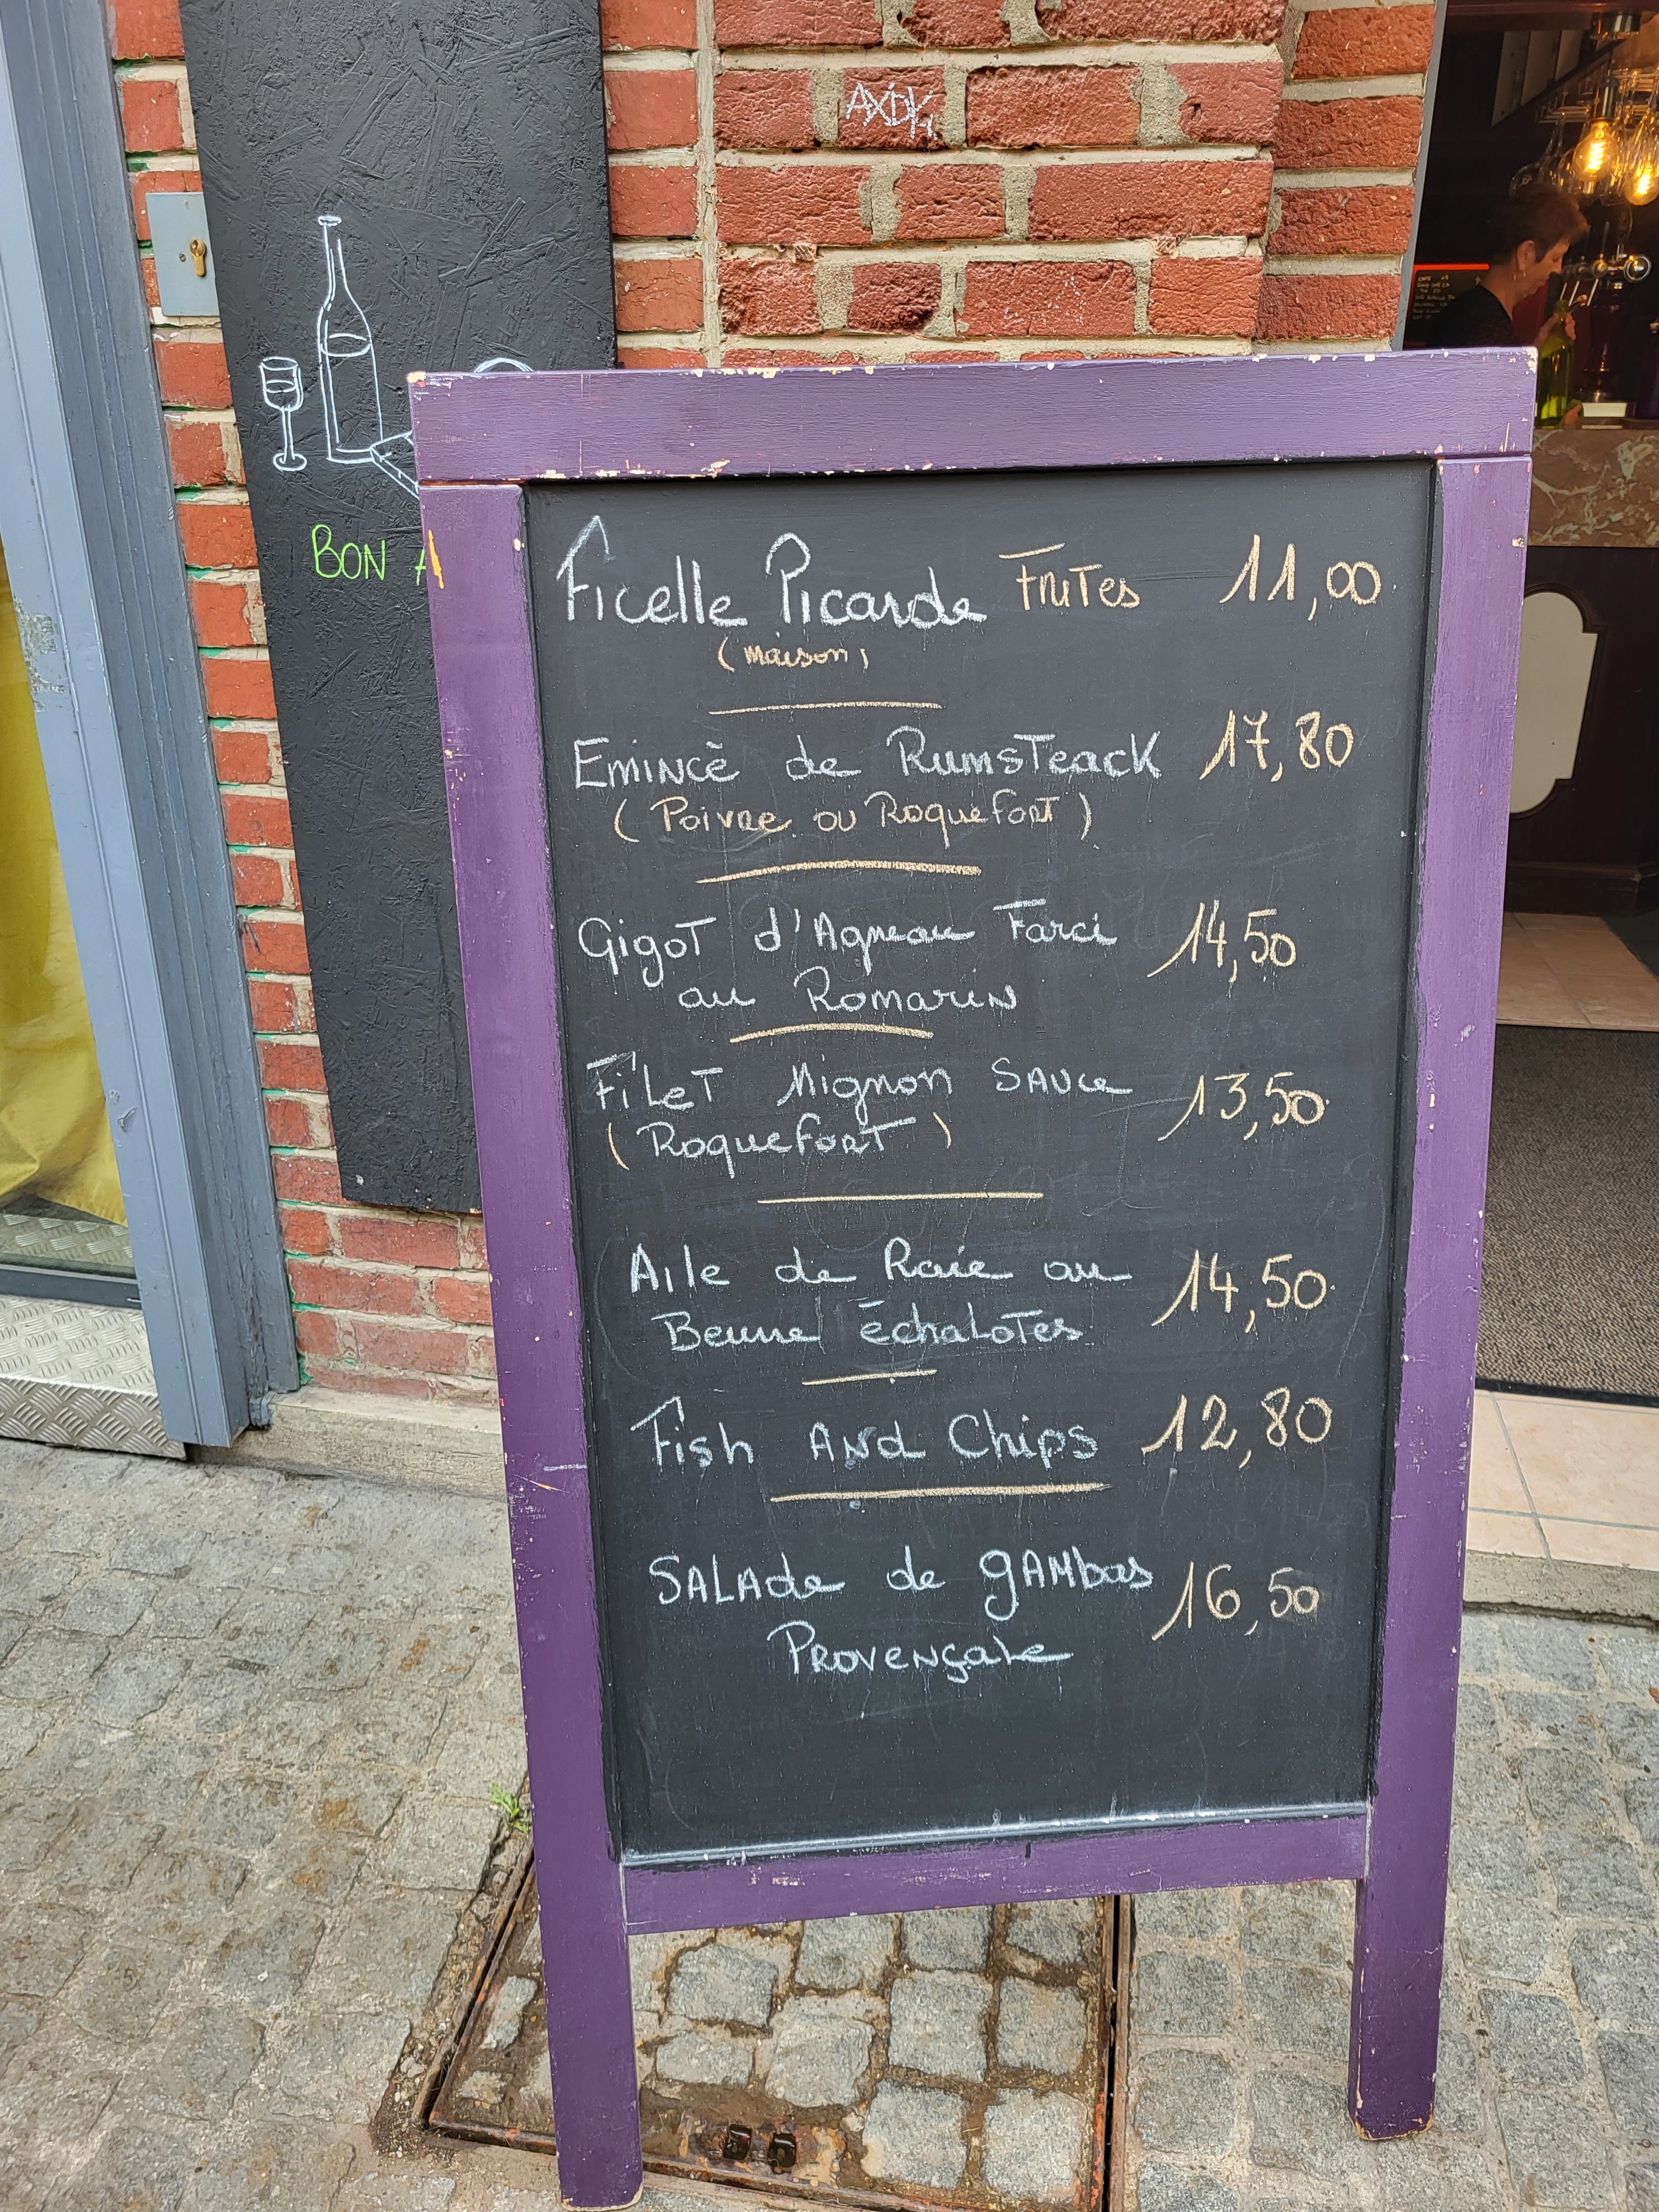 AXDK
BON A
Ficelle Picarde Frites 11,00
(maison)
Emincè de Rumsteack 17,80
(Poivre ou Roquefort)
Gigot d'Agneau Farci 14,50
au Romarin
Filet Mignon Sauce 13,50
(Roquefort)
Aile de Raie au 14,50
Beurre échalotes
Fish And Chips 12,80
Salade de gambas 16,50
Provençale